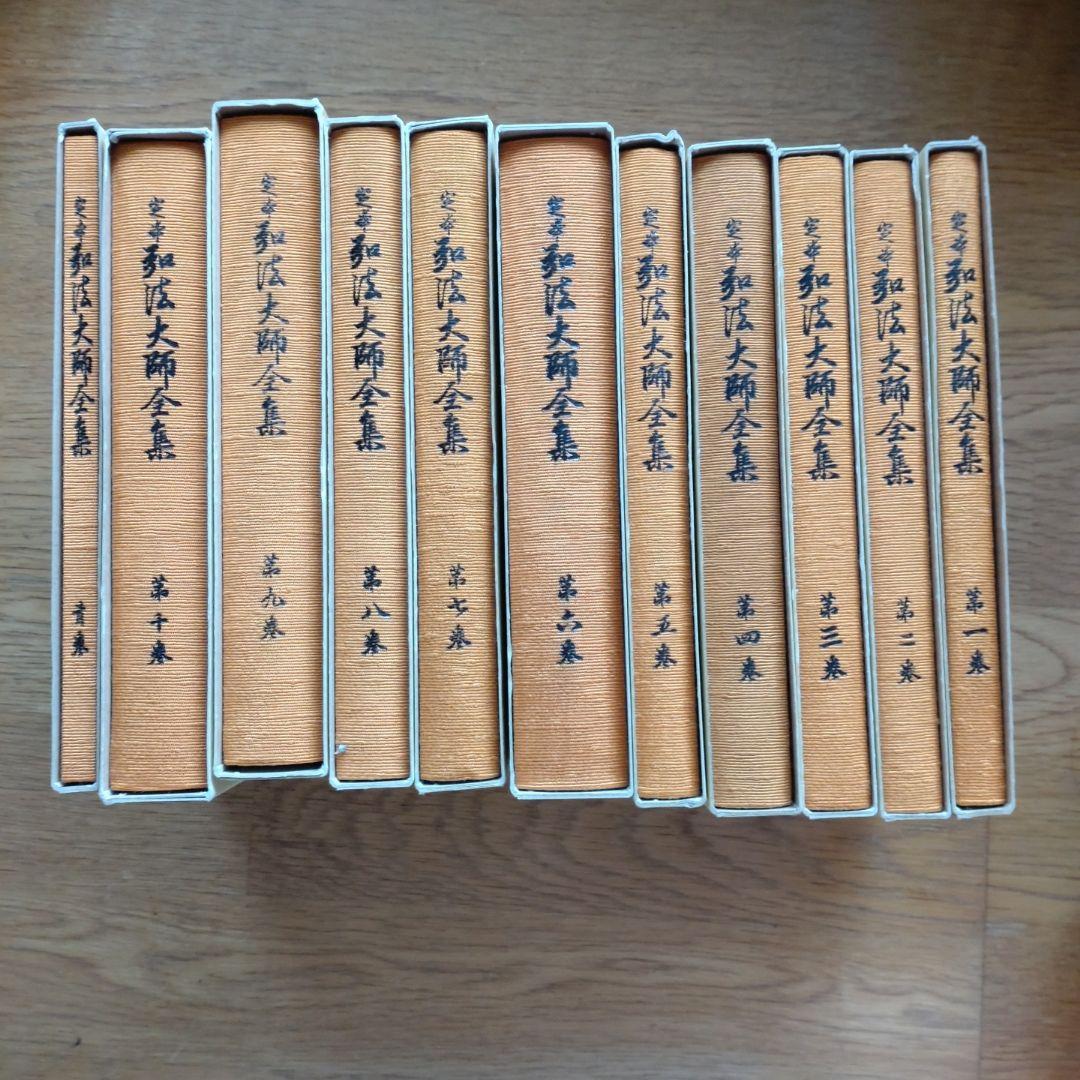 定本弘法大師全集 第一巻
定本弘法大師全集 第二巻
定本弘法大師全集 第三巻
定本弘法大師全集 第四巻
定本弘法大師全集 第五巻
定本弘法大師全集 第六巻
定本弘法大師全集 第七巻
定本弘法大師全集 第八巻
定本弘法大師全集 第九巻
定本弘法大師全集 第十巻
定本弘法大師全集 首巻